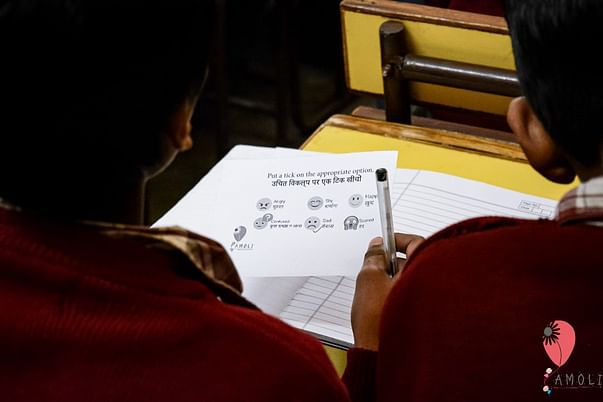 Put a tick on the appropriate option.
उचित विकल्प पर एक टिक खींचो
Angry
गुस्सा
Shy
शर्माना
Happy
खुश
Confused
कुछ समझ न आना
Sad
उदास
Scared
डर
AMOLI
AMOLI